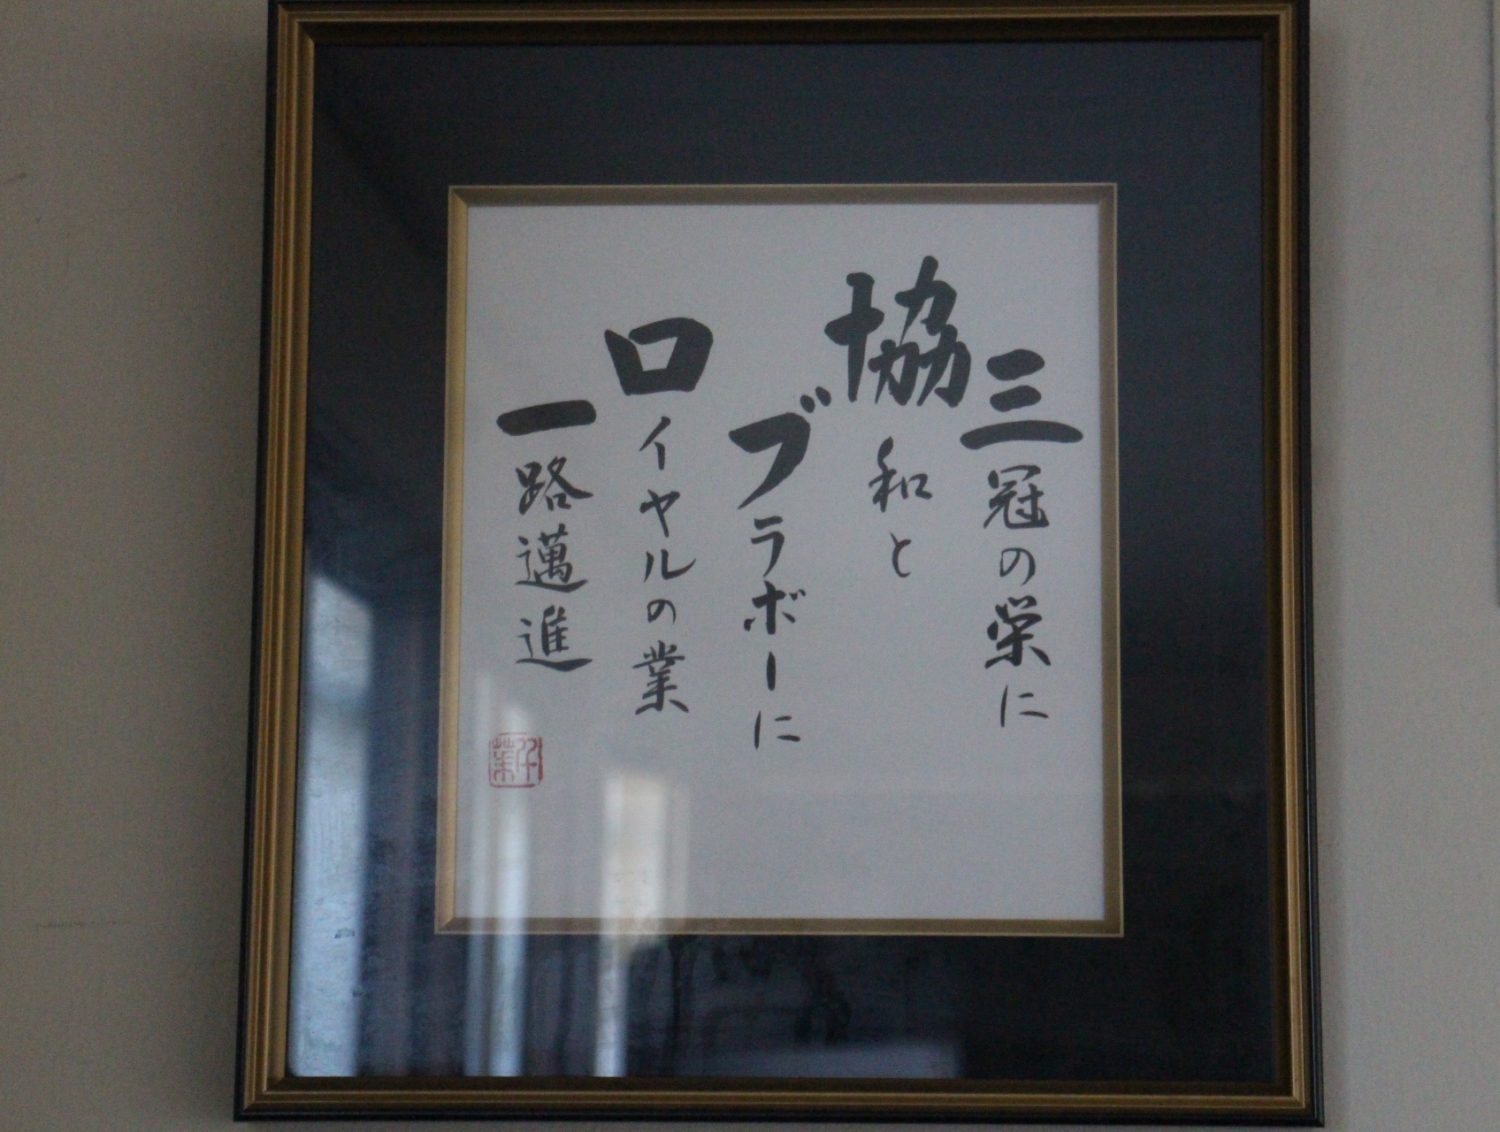 三冠の栄に
協和と
ブラボーに
ロイヤルの業
一路邁進